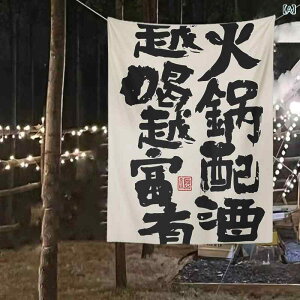 火锅配酒
越喝越富有
[A]